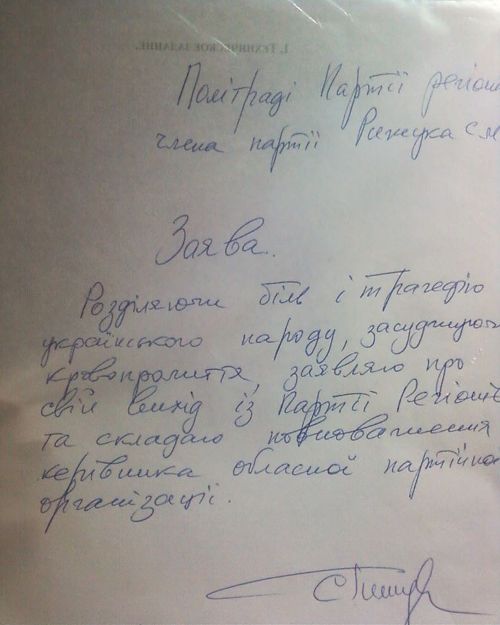 1. ТЕХНИЧЕСКОЕ ЗАДАНИЕ.
Політраді Партії регіон
члена партії Рижука С.М
Заява.
Розділяючи біль і трагедію
українського народу, засуджуючи
кровопролиття, заявляю про
свій вихід із Партії Регіонів
та складаю повноваження
керівника обласної партійної
організації.